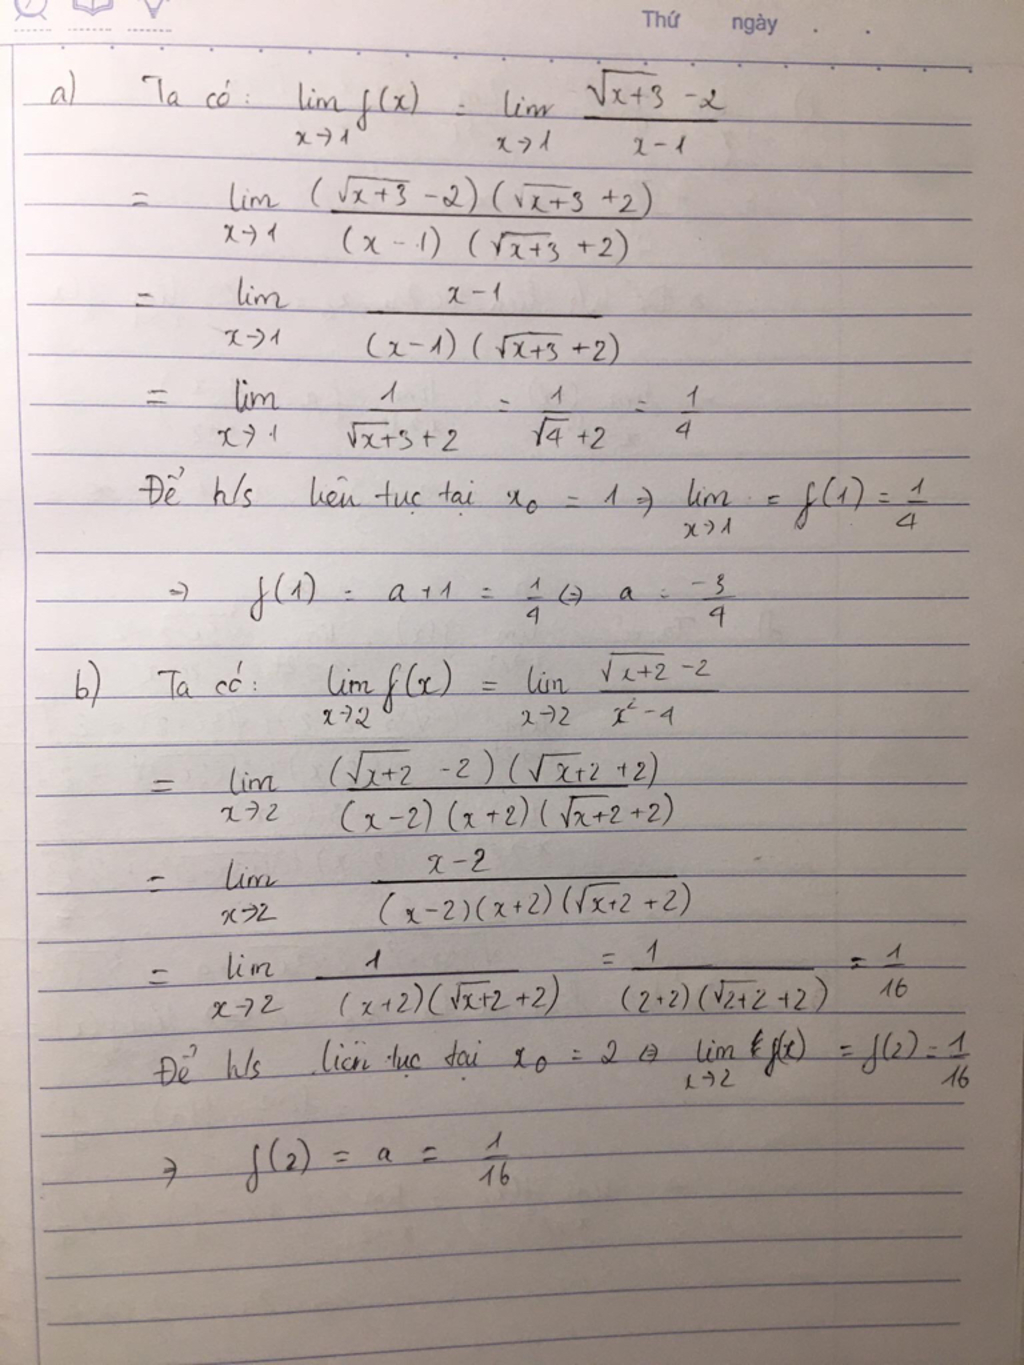 Thứ ngày . .
a) Ta có: lim f(x) = lim (√(x+3) - 2)/(x - 1)
x→1 x→1
= lim ((√(x+3) - 2)(√(x+3) + 2))/((x - 1)(√(x+3) + 2))
x→1
= lim (x - 1)/((x - 1)(√(x+3) + 2))
x→1
= lim 1/(√x+3 + 2) = 1/(√4 + 2) = 1/4
x→1
Để h/s liên tục tại x₀ = 1 ⇒ lim = f(1) = 1/4
x→1
⇒ f(1) = a + 1 = 1/4 ⇔ a = -3/4
b) Ta có: lim f(x) = lim (√(x+2) - 2)/(x² - 4)
x→2 x→2
= lim ((√(x+2) - 2)(√(x+2) + 2))/((x - 2)(x + 2)(√(x+2) + 2))
x→2
= lim (x - 2)/((x - 2)(x + 2)(√(x+2) + 2))
x→2
= lim 1/((x + 2)(√(x+2) + 2)) = 1/((2 + 2)(√(2+2) + 2)) = 1/16
x→2
Để h/s liên tục tại x₀ = 2 ⇔ lim f(x) = f(2) = 1/16
x→2
⇒ f(2) = a = 1/16